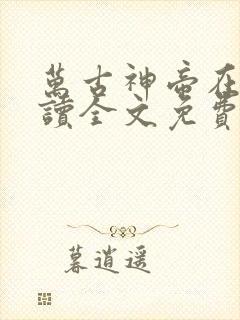 萬古神帝在
讀全文免費
暮逍遥